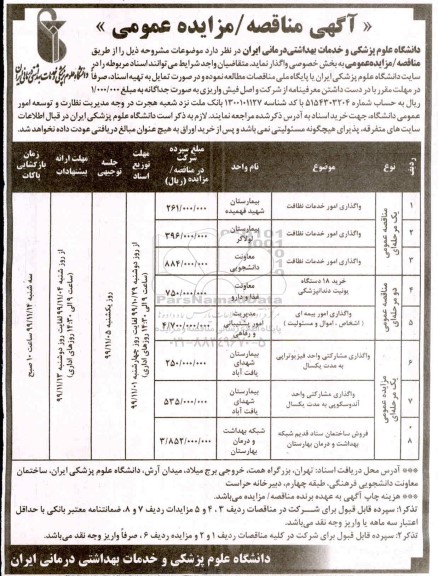 « آگهی مناقصه/مزایده عمومی »
دانشگاه علوم پزشکی و خدمات بهداشتی درمانی ایران
دانشگاه علوم پزشکی و خدمات بهداشتی درمانی ایران در نظر دارد موضوعات مشروحه ذیل را از طریق
مناقصه/مزایده عمومی به بخش خصوصی واگذار نماید. متقاضیان واجد شرایط می توانند اسناد مربوطه را در
سایت دانشگاه علوم پزشکی ایران یا پایگاه ملی مناقصات مطالعه نموده و در صورت تمایل به تهیه اسناد، صرفاً
در مهلت مقرر با در دست داشتن معرفینامه از شرکت و اصل فیش واریزی به صورت جداگانه به مبلغ ۱/۰۰۰/۰۰۰
ریال به حساب شماره ۵۱۵۴۳۰۳۲۰۴ با کد شناسه ۱۳۰۰۱۰۱۱۲۷ بانک ملت نزد شعبه هجرت در وجه مدیریت نظارت و توسعه امور
عمومی دانشگاه، جهت خرید اسناد به آدرس ذکر شده مراجعه نمایند. لازم به ذکر است دانشگاه علوم پزشکی ایران در قبال اطلاعات
سایت های متفرقه، پذیرای هیچگونه مسئولیتی نمی باشد و پس از خرید اوراق به هیچ عنوان مبالغ دریافتی عودت داده نخواهد شد.
ردیف نوع موضوع نام واحد مبلغ سپرده شرکت در مناقصه/مزایده (ریال) مهلت توزیع اسناد جلسه توجیهی مهلت ارائه پیشنهادات زمان بازگشائی پاکات
مناقصه عمومی یک مرحله‌ای
۱ واگذاری امور خدمات نظافت بیمارستان شهید فهمیده ۲۶۱/۰۰۰/۰۰۰
۲ واگذاری امور خدمات نظافت بیمارستان لولاگر ۳۹۶/۰۰۰/۰۰۰
۳ واگذاری امور خدمات نظافت معاونت دانشجویی ۸۸۴/۰۰۰/۰۰۰
مناقصه عمومی دو مرحله‌ای
۴ خرید ۱۸ دستگاه یونیت دندانپزشکی معاونت غذا و دارو ۷۵۰/۰۰۰/۰۰۰
۵ واگذاری امور بیمه ای (اشخاص، اموال و مسئولیت) مدیریت امور پشتیبانی و رفاهی ۴/۷۰۰/۰۰۰/۰۰۰
مزایده عمومی یک مرحله‌ای
۶ واگذاری مشارکتی واحد فیزیوتراپی به مدت یکسال بیمارستان شهدای یافت آباد ۲۵۰/۰۰۰/۰۰۰
۷ واگذاری مشارکتی واحد آندوسکوپی به مدت یکسال بیمارستان شهدای یافت آباد ۵۳۵/۰۰۰/۰۰۰
۸ فروش ساختمان ستاد قدیم شبکه بهداشت و درمان بهارستان شبکه بهداشت و درمان بهارستان ۳/۸۵۲/۰۰۰/۰۰۰
از روز دوشنبه ۹۹/۱۰/۲۹ لغایت روز چهارشنبه ۹۹/۱۱/۰۱ (ساعت ۹ الی ۱۴:۳۰ روزهای اداری)
روز یکشنبه ۹۹/۱۱/۰۵
از روز شنبه ۹۹/۱۱/۰۴ لغایت روز دوشنبه ۹۹/۱۱/۱۳ (ساعت ۹ الی ۱۴:۳۰ روزهای اداری)
سه شنبه ۹۹/۱۱/۱۴ ساعت ۱۰ صبح
ParsNamadData
*** آدرس محل دریافت اسناد: تهران، بزرگراه همت، خروجی برج میلاد، میدان آرش، دانشگاه علوم پزشکی ایران، ساختمان
معاونت دانشجویی فرهنگی، طبقه چهارم، دبیرخانه حراست
*** هزینه چاپ آگهی به عهده برنده مناقصه/مزایده می‌باشد.
تذکر۱: سپرده قابل قبول برای شرکت در مناقصات ردیف ۳، ۴ و ۵ مزایدات ردیف ۷ و ۸، ضمانتنامه معتبر بانکی با حداقل
اعتبار سه ماهه یا واریز وجه نقد می‌باشد.
تذکر۲: سپرده قابل قبول برای شرکت در کلیه مناقصات ردیف ۱ و ۲ و مزایده ردیف ۶، صرفاً واریز وجه نقد می‌باشد.
دانشگاه علوم پزشکی و خدمات بهداشتی درمانی ایران